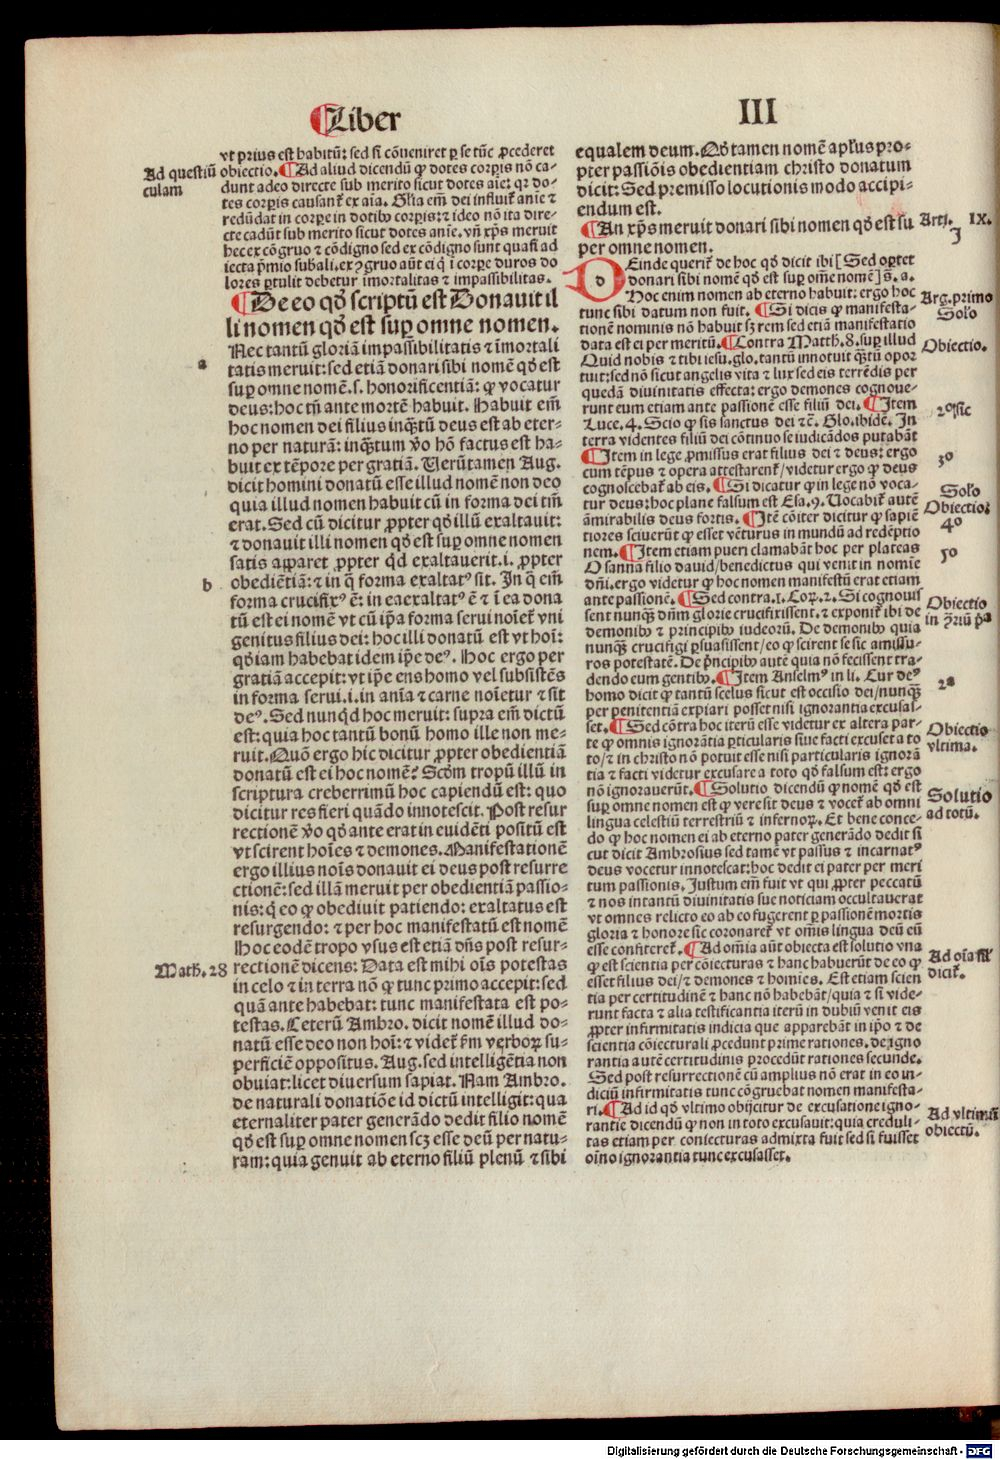 ¶Liber
III
vt prius est habitū: sed si cōueniret ꝑ se tūc ꝓcederet
Ad questiū
culam
obiectio. ¶Ad aliud dicendū ꝙ dotes corꝑis nō ca-
dunt adeo directe sub merito sicut dotes aīe: qꝛ do-
tes corꝑis causant᷑ ex aīa. Glīa em̄ dei influit᷑ anīe ⁊
redūdat in corꝑe in dotibꝰ corꝑis: ⁊ ideo nō ita dire-
cte cadūt sub merito sicut dotes anīe. vn̄ xp̄s meruit
hec ex cōgruo ⁊ cōdigno sed ex cōdigno sunt quasi ad
iecta p̄mio sub̄ali. ex ꝯgruo aūt ei ꝙ ī corꝑe duros do
lores ꝑtulit debetur imortalitas ⁊ impassibilitas.
¶De eo qd̄ scriptū est Donauit il
li nomen qd̄ est suꝑ omne nomen.
a
Nec tantū gloriā impassibilitatis ⁊ īmortali
tatis meruit: sed etiā donari sibi nomē qd̄ est
suꝑ omne nomē. s. honorificentiā: ꝙ vocatur
deus: hoc tn̄ ante mortē habuit. Habuit em̄
hoc nomen dei filius inqꝫtū deus est ab eter-
no per naturā: inqꝫtum v̄o hō factus est ha-
buit ex tēpore per gratiā. Uerūtamen Aug.
dicit homini donatū esse illud nomē non deo
quia illud nomen habuit cū in forma dei tm̄
erat. Sed cū dicitur ꝓpter qd̄ illū exaltauit:
⁊ donauit illi nomen qd̄ est suꝑ omne nomen
satis apparet ꝓpter qd̄ exaltauerit. i. ꝓpter
b
obediētiā: ⁊ in q̄ forma exaltatꝰ sit. In q̄ em̄
forma crucifixꝰ ē: in ea exaltatꝰ ē ⁊ ī ea dona
tū est ei nomē vt cū ip̄a forma serui noīet᷑ vni
genitus filius dei: hoc illi donatū est vt hoī:
qd̄ iam habebat idem ip̄e deꝰ. Hoc ergo per
gratiā accepit: vt ip̄e ens homo vel subsistēs
in forma serui. i. in anīa ⁊ carne noīetur ⁊ sit
deꝰ. Sed nunqd̄ hoc meruit: supra em̄ dictū
est: quia hoc tantū bonū homo ille non me-
ruit. Quō ergo hic dicitur ꝓpter obedientiā
donatū est ei hoc nomē? Scd̄m tropū illū in
scriptura creberrimū hoc capiendū est: quo
dicitur res fieri quādo innotescit. Post resur
rectionē v̄o qd̄ ante erat in euidēti positū est
vt scirent hoīes ⁊ demones. Manifestationē
ergo illius noīs donauit ei deus post resurre
ctionē: sed illā meruit per obedientiā passio-
nis: q̄ eo ꝙ obediuit patiendo: exaltatus est
resurgendo: ⁊ per hoc manifestatū est nomē
Hoc eodē tropo vsus est etiā dn̄s post resur-
Math. 28
rectionē dicens: Data est mihi oīs potestas
in celo ⁊ in terra nō ꝙ tunc primo accepit: sed
quā ante habebat: tunc manifestata est po-
testas. Ceterū Ambro. dicit nomē illud do-
natū esse deo non hoī: ⁊ videt᷑ ẜm verboꝝ su-
perficiē oppositus. Aug. sed intelligētia non
obuiat: licet diuersum sapiat. Nam Ambro.
de naturali donatiōe id dictū intelligit: qua
eternaliter pater generādo dedit filio nomē
qd̄ est suꝑ omne nomen scꝫ esse deū per natu-
ram: quia genuit ab eterno filiū plenū ⁊ sibi
equalem deum. Qd̄ tamen nomē apl̄us pro-
pter passiōis obedientiam christo donatum
dicit: Sed premisso locutionis modo accipi-
endum est.
¶An xp̄s meruit donari sibi nomen qd̄ est su
per omne nomen.
Arti. IX.
Deinde querit᷑ de hoc qd̄ dicit ibi [Sed oꝑtet
donari sibi nomē qd̄ est suꝑ om̄e nomē] s. a.
Hoc enim nomen ab eterno habuit: ergo hoc
Arg. primo
tunc sibi datum non fuit. ¶Si dicis ꝙ manifesta-
Solo
tionē nominis nō habuit sꝫ rem sed etiā manifestatio
data est ei per meritū. ¶Contra Matth. 8. suꝑ illud
Obiectio.
Quid nobis ⁊ tibi iesu. glo. tantū innotuit qꝫtū opor
tuit: sed nō sicut angelis vita ⁊ lux sed eis terrēdis per
quedā diuinitatis effecta: ergo demones cognoue-
runt eum etiam ante passionē esse filiū dei. ¶Item
Luce. 4. Scio ꝙ sis sanctus dei ⁊c̄. Glo. ibidē. In
terra videntes filiū dei cōtinuo se iudicādos putabāt
¶Item in lege ꝓmissus erat filius dei ⁊ deus: ergo
3o
cum tēpus ⁊ opera attestarent᷑/ videtur ergo ꝙ deus
cognoscebat᷑ ab eis. ¶Si dicatur ꝙ in lege nō voca-
Solo
tur deus: hoc plane falsum est Esa. 9. Uocabit᷑ autē
Obiectio:
āmirabilis deus fortis. ¶Itē cōiter dicitur ꝙ sapiē
4o
tiores sciuerūt ꝙ esset vēturus in mundū ad redēptio
nem. ¶Item etiam pueri clamabāt hoc per plateas
5o
Osanna filio dauid/ benedictus qui venit in nomīe
dn̄i. ergo videtur ꝙ hoc nomen manifestū erat etiam
ante passionē. ¶Sed contra. 1. Coꝝ. 2. Si cognouis
Obiectio
sent nunqꝫ dn̄m glorie crucifixissent. ⁊ exponit᷑ ibi de
demonibꝰ ⁊ principibꝰ iudeorū. De demonibꝰ quia
nunqꝫ crucifigi ꝑsuasissent/ eo ꝙ scirent se sic amissu-
ros potestatē. De p̄ncipibꝰ autē quia nō fecissent tra-
dendo eum gentibꝰ. ¶Item Anselmꝰ in li. Cur deꝰ
2a
homo dicit ꝙ tantū scelus sicut est occisio dei/ nunqꝫ
per penitentiā expiari posset nisi ignorantia excusas-
set. ¶Sed cōtra hoc iterū esse videtur ex altera par-
Obiectio
vltima.
te ꝙ omnis ignorātia ꝑticularis siue facti excuset a to
to/ ⁊ in christo nō potuit esse nisi particularis ignorā
tia ⁊ facti videtur excusare a toto qd̄ falsum est: ergo
nō ignorauerūt. ¶Solutio dicendū ꝙ nomē qd̄ est
Solutio
ad totū.
suꝑ omne nomen est ꝙ vere sit deus ⁊ vocet᷑ ab omni
lingua celestiū terrestriū ⁊ infernoꝝ. Et bene conce-
do ꝙ hoc nomen ei ab eterno pater generādo dedit si
cut dicit Ambrosius sed tamē vt passus ⁊ incarnatꝰ
deus vocetur innotescat: hoc dedit ei pater per meri
tum passionis. Justum em̄ fuit vt qui ꝓpter peccatū
⁊ nos intantū diuinitatis sue noticiam occultauerat
vt omnes relicto eo ab eo fugerent ꝑ passionē mortis
gloria ⁊ honore sic coronaret᷑ vt om̄is lingua deū eū
esse confiteret᷑. ¶Ad om̄ia aūt obiecta est solutio vna
Ad oīa
dicit᷑.
ꝙ est scientia per cōiecturas ⁊ hanc habuerūt de eo ꝙ
esset filius dei/ ⁊ demones ⁊ homīes. Est etiam scien
tia per certitudinē ⁊ hanc nō habebāt/ quia ⁊ si vide-
runt facta ⁊ alia testificantia iterū in dubiū venit eis
ꝓpter infirmitatis indicia que apparebāt in ip̄o ⁊ de
scientia cōiecturali ꝓcedunt prime rationes. de igno
rantia autē certitudinis procedūt rationes secunde.
Sed post resurrectionē cū amplius nō erat in eo in-
diciū infirmitatis tunc cōgruebat nomen manifesta-
ri. ¶Ad id qd̄ vltimo obijcitur de excusatione igno-
Ad vltimū
obiectū.
rantie dicendū ꝙ non in toto excusauit: quia creduli-
tas etiam per coniecturas admixta fuit sed si fuisset
oīno ignorantia tunc excusasset.
Digitalisierung gefördert durch die Deutsche Forschungsgemeinschaft - DFG